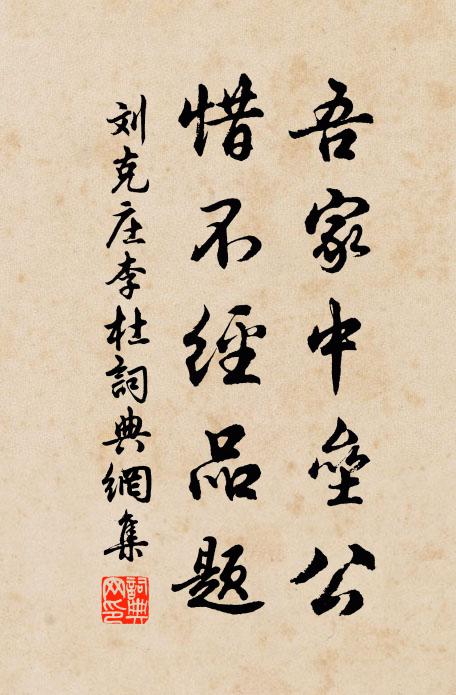 吾家中壘公
惜不經品題
刘克庄李杜詞典網集
詞典网印